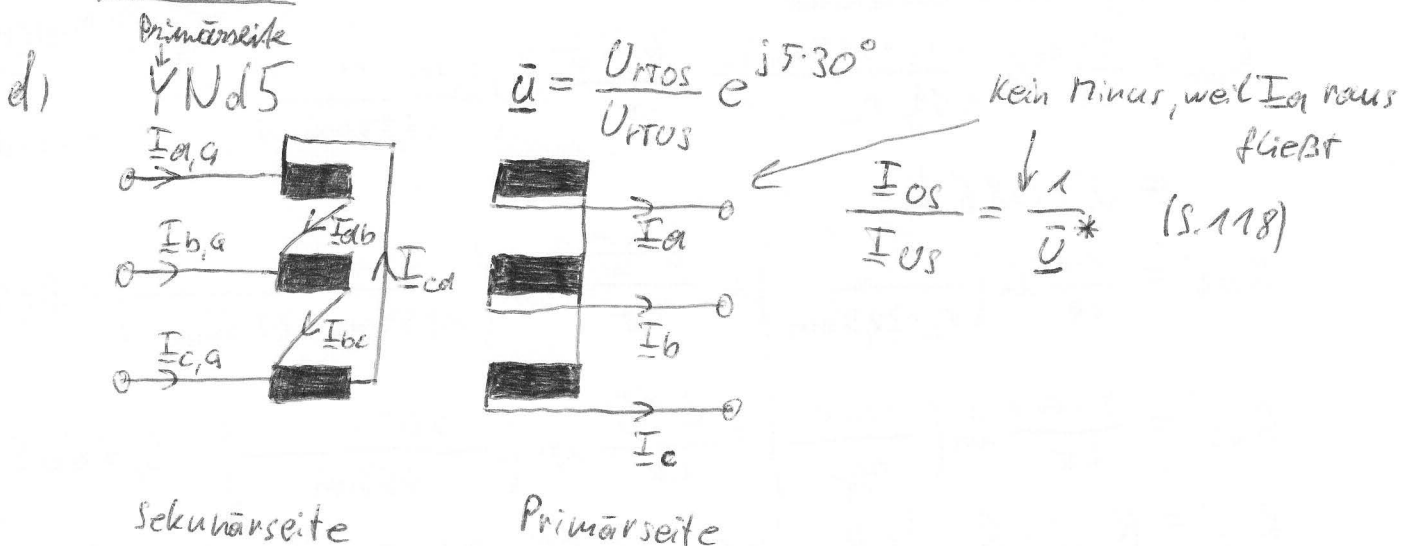 Primärseite
d) YNd5
ü = U_rTOS / U_rTUS e^j5·30°
Kein Minus, weil I_a raus
fließt
I_OS / I_US = 1 / ü* (S.118)
I_a,a
I_ab
I_b,a
I_ca
I_bc
I_c,a
I_a
I_b
I_c
Sekunärseite
Primärseite